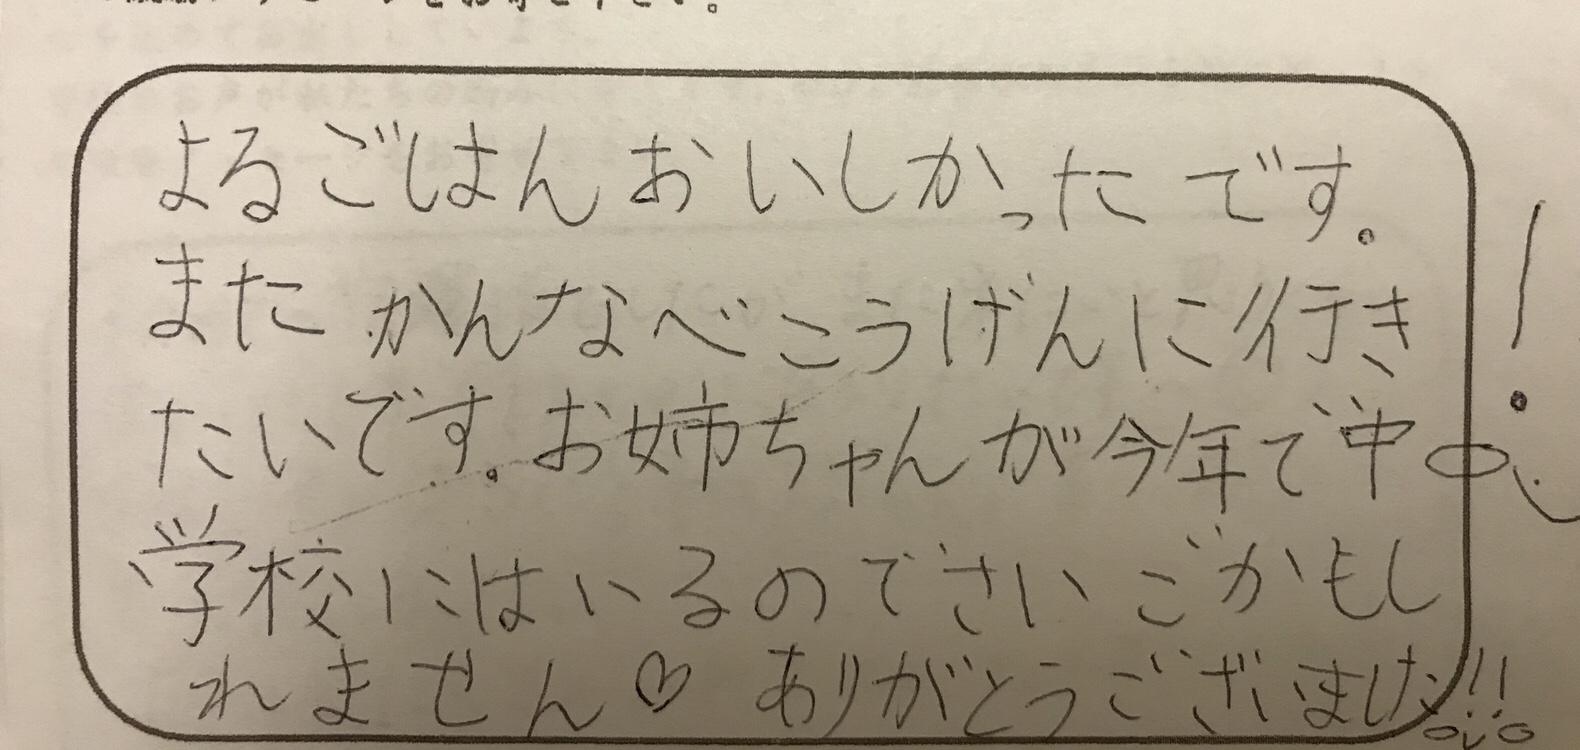 よるごはんおいしかったです。
またかんなべこうげんに行き
たいです。お姉ちゃんが今年で中
学校にはいるのでさいごかもし
れません♡ ありがとうございました!!